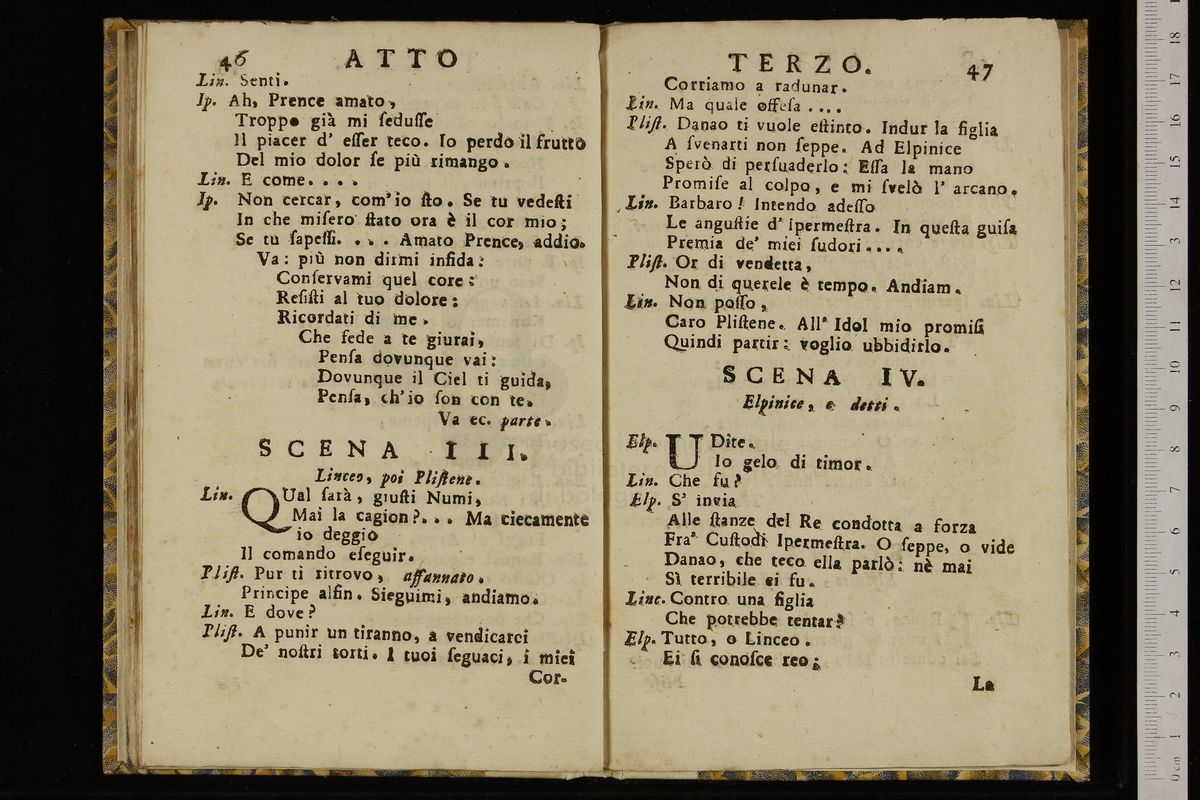 46 ATTO
Lin. Senti.
Ip. Ah, Prence amato,
Troppo già mi ſeduſſe
Il piacer d' eſſer teco. Io perdo il frutto
Del mio dolor ſe più rimango.
Lin. E come. . . .
Ip. Non cercar, com'io ſto. Se tu vedeſti
In che miſero ſtato ora è il cor mio;
Se tu ſapeſſi. . . . Amato Prence, addio.
Va: più non dirmi infida:
Conſervami quel core:
Reſiſti al tuo dolore:
Ricordati di me.
Che fede a te giurai,
Penſa dovunque vai:
Dovunque il Ciel ti guida,
Penſa, ch'io ſon con te.
Va ec. parte.
SCENA III.
Linceo, poi Pliſtene.
Lin. QUal ſarà, giuſti Numi,
Mai la cagion?. . . Ma ciecamente
io deggio
Il comando eſeguir.
Pliſt. Pur ti ritrovo, affannato.
Principe alfin. Sieguimi, andiamo.
Lin. E dove?
Pliſt. A punir un tiranno, a vendicarci
De' noſtri torti. I tuoi ſeguaci, i miei
Cor-
TERZO. 47
Corriamo a radunar.
Lin. Ma quale offeſa . . . .
Pliſt. Danao ti vuole eſtinto. Indur la figlia
A ſvenarti non ſeppe. Ad Elpinice
Sperò di perſuaderlo: Eſſa la mano
Promiſe al colpo, e mi ſvelò l' arcano.
Lin. Barbaro! Intendo adeſſo
Le anguſtie d' Ipermeſtra. In queſta guiſa
Premia de' miei ſudori. . . .
Pliſt. Or di vendetta,
Non di querele è tempo. Andiam.
Lin. Non poſſo,
Caro Pliſtene. All' Idol mio promiſi
Quindi partir: voglio ubbidirlo.
SCENA IV.
Elpinice, e detti.
Elp. UDite.
Io gelo di timor.
Lin. Che fu?
Elp. S' invia
Alle ſtanze del Re condotta a forza
Fra' Cuſtodi Ipermeſtra. O ſeppe, o vide
Danao, che teco ella parlò: nè mai
Sì terribile ei fu.
Linc. Contro una figlia
Che potrebbe tentar?
Elp. Tutto, o Linceo.
Ei ſi conoſce reo;
La